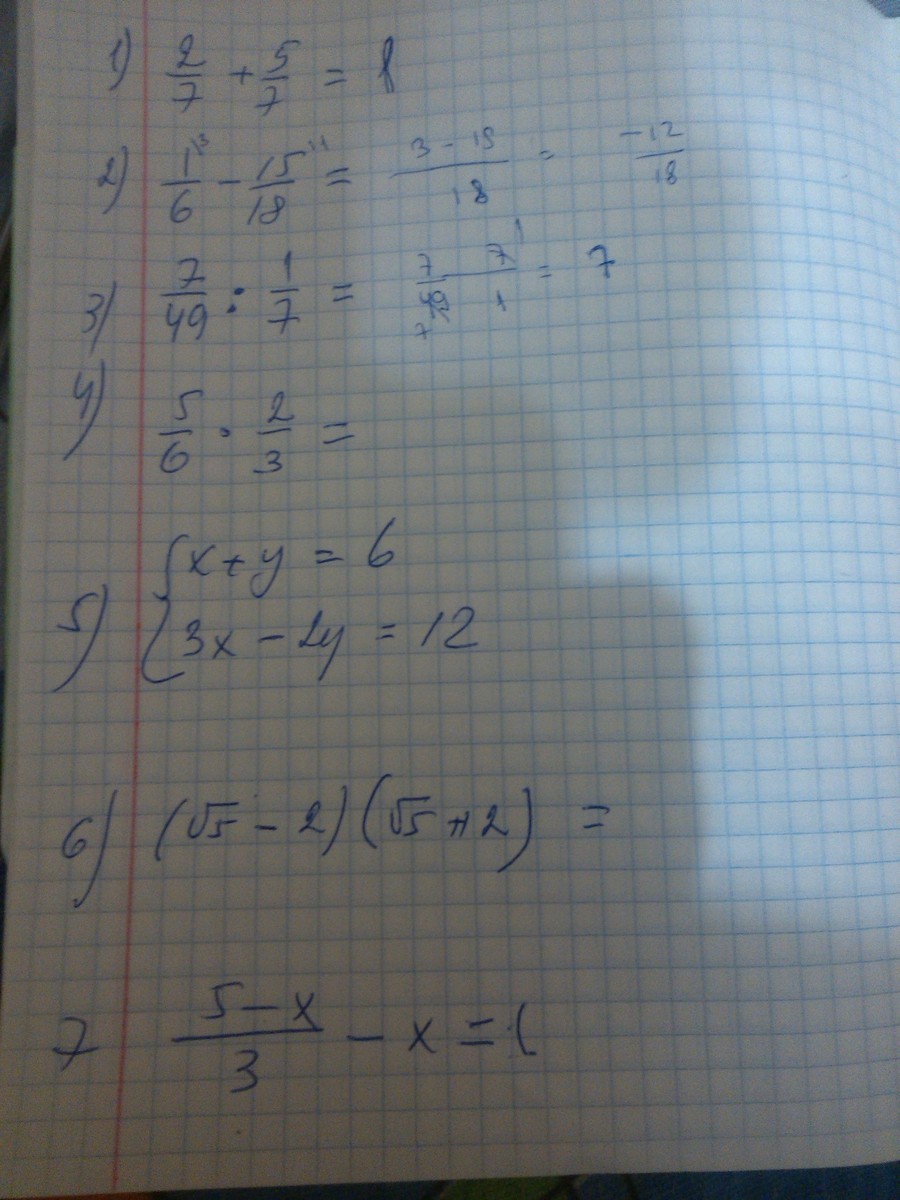 1) 2/7 + 5/7 = 1
2) 1/6 - 15/18 = (3 - 15)/18 = -12/18
3) 7/49 : 1/7 = 7/49 7/1 = 7
4) 5/6 · 2/3 =
5) { x + y = 6
3x - 2y = 12
6) (√5 - 2)(√5 + 2) =
7 (5 - x)/3 - x = 1